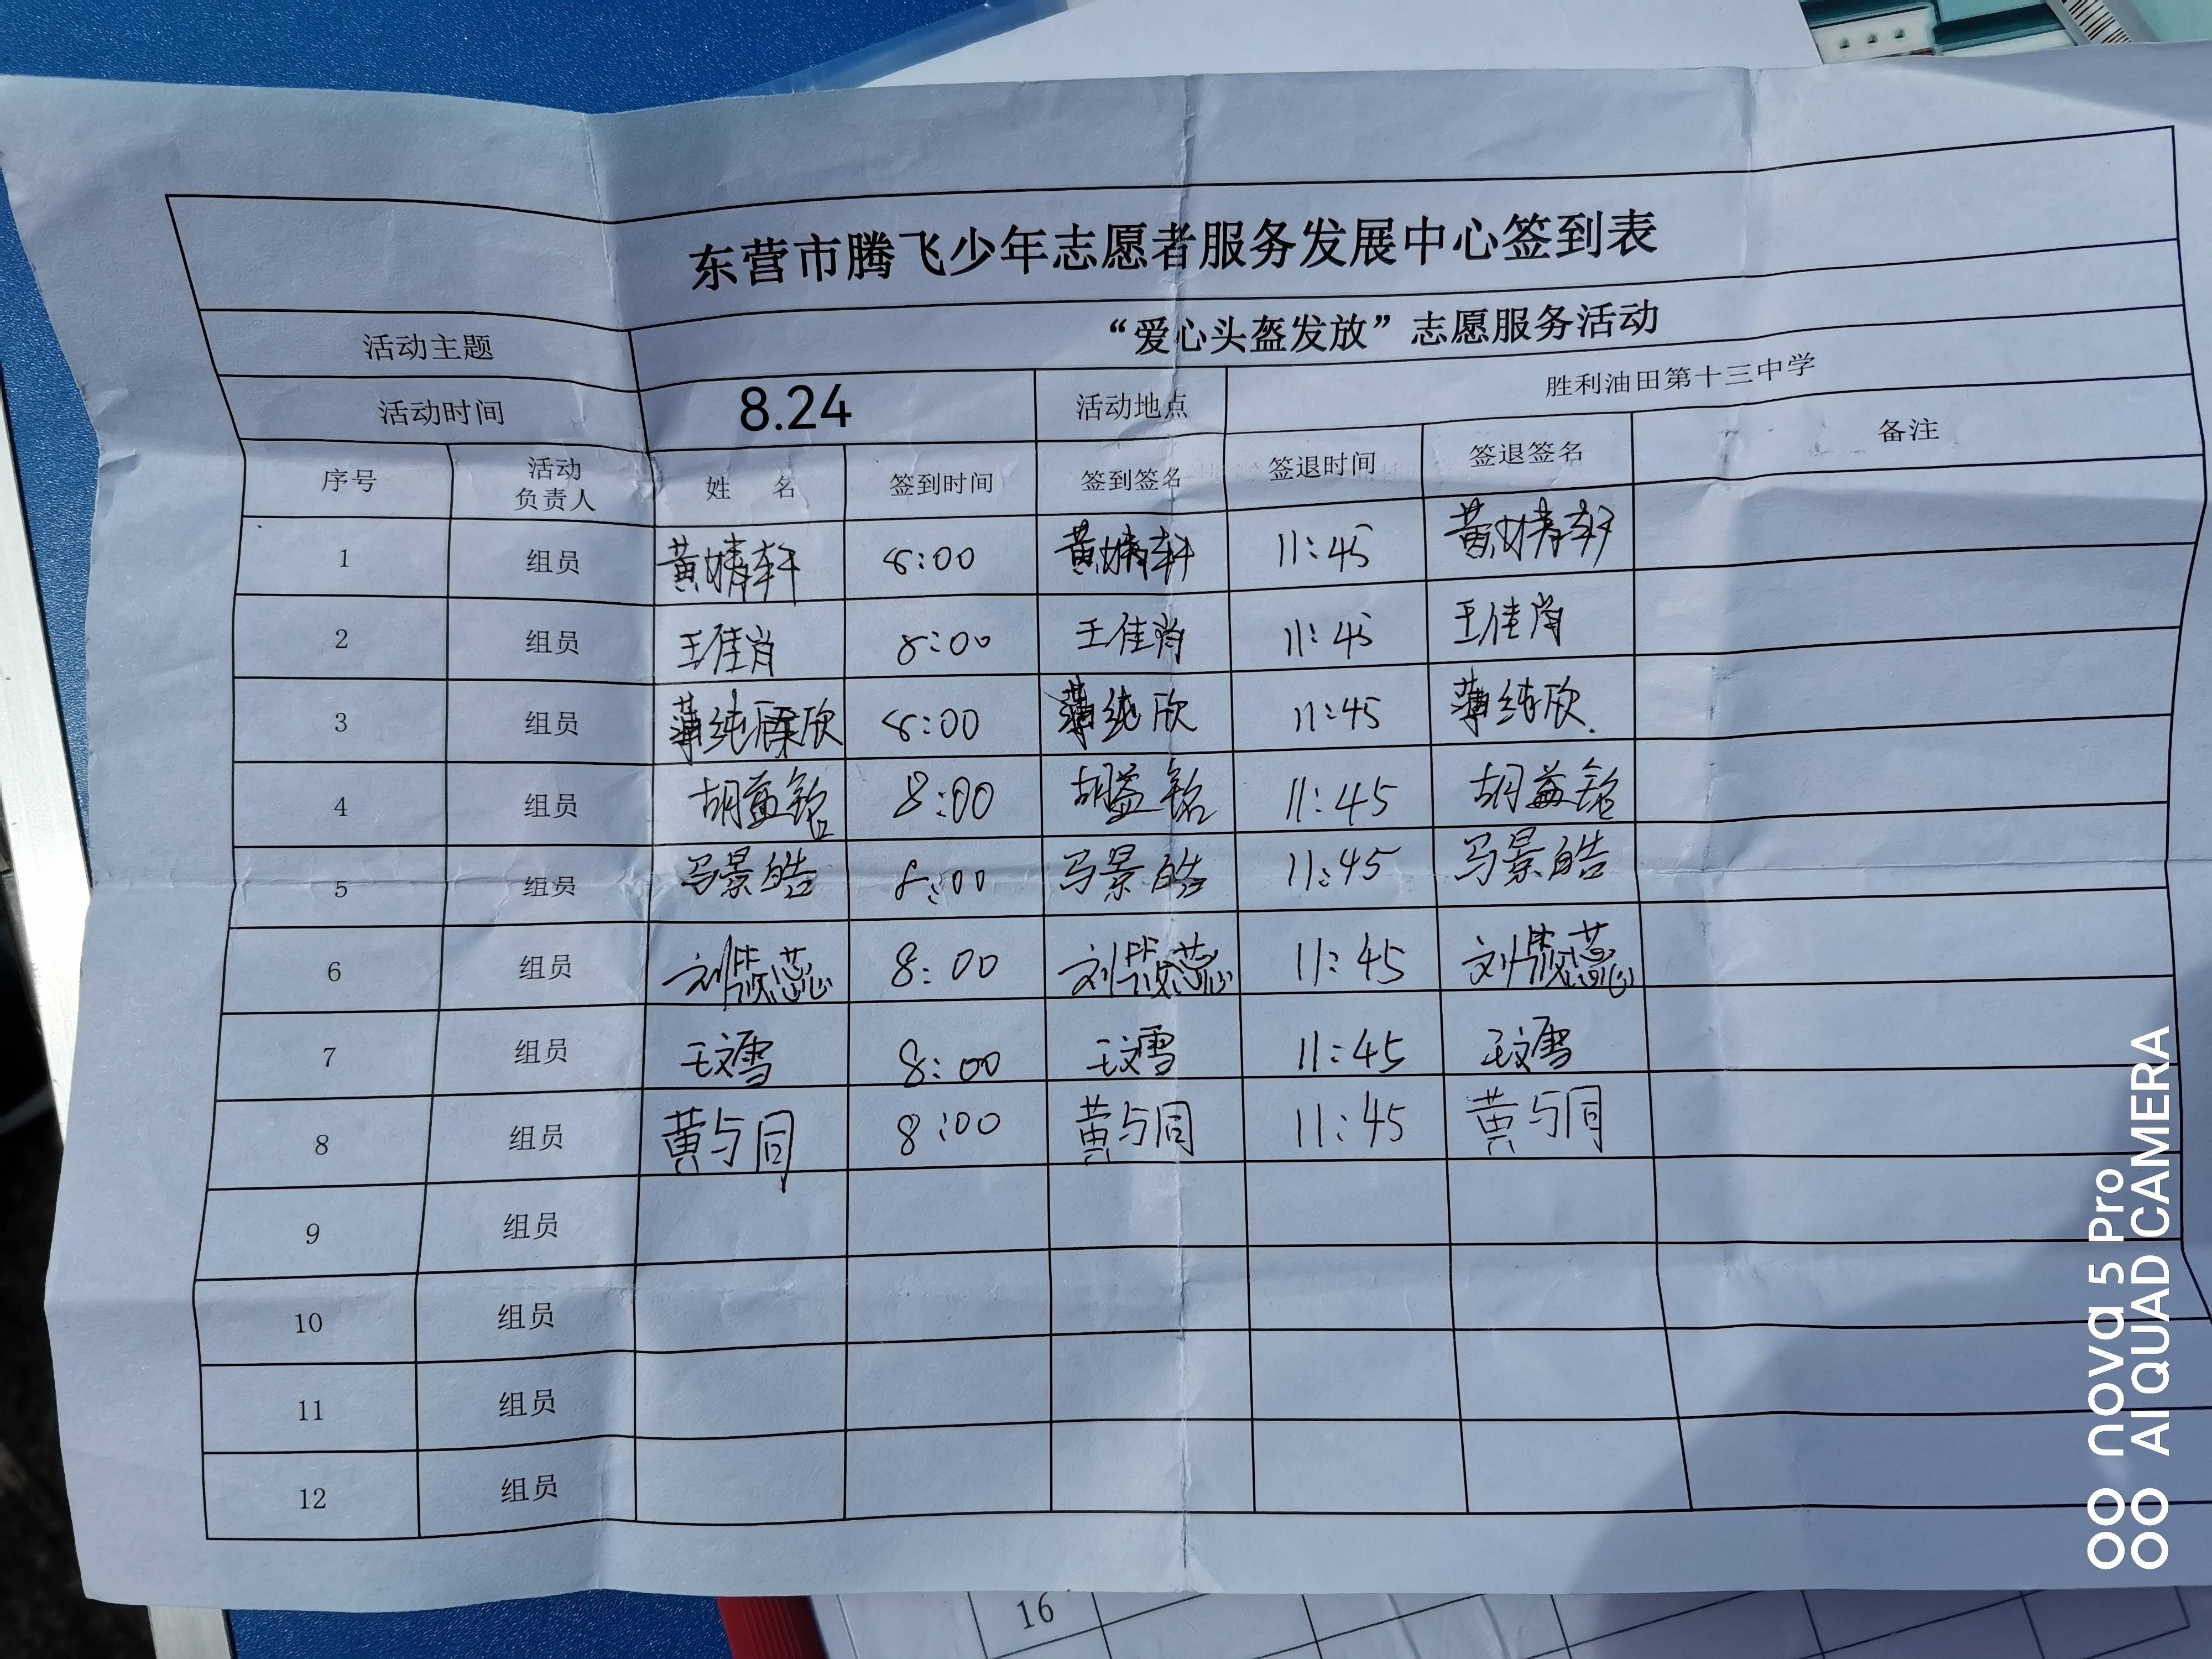 东营市腾飞少年志愿者服务发展中心签到表
活动主题 “爱心头盔发放”志愿服务活动
活动时间 8.24 活动地点 胜利油田第十三中学
序号 活动负责人 姓 名 签到时间 签到签名 签退时间 签退签名 备注
1 组员 黄婧轩 8:00 黄婧轩 11:45 黄婧轩
2 组员 王佳肖 8:00 王佳肖 11:45 王佳肖
3 组员 薄纯欣 8:00 薄纯欣 11:45 薄纯欣
4 组员 胡益铭 8:00 胡益铭 11:45 胡益铭
5 组员 马景皓 8:00 马景皓 11:45 马景皓
6 组员 刘筱蕊 8:00 刘筱蕊 11:45 刘筱蕊
7 组员 王文雪 8:00 王文雪 11:45 王文雪
8 组员 黄与同 8:00 黄与同 11:45 黄与同
9 组员
10 组员
11 组员
12 组员
16
nova 5 Pro
AI QUAD CAMERA